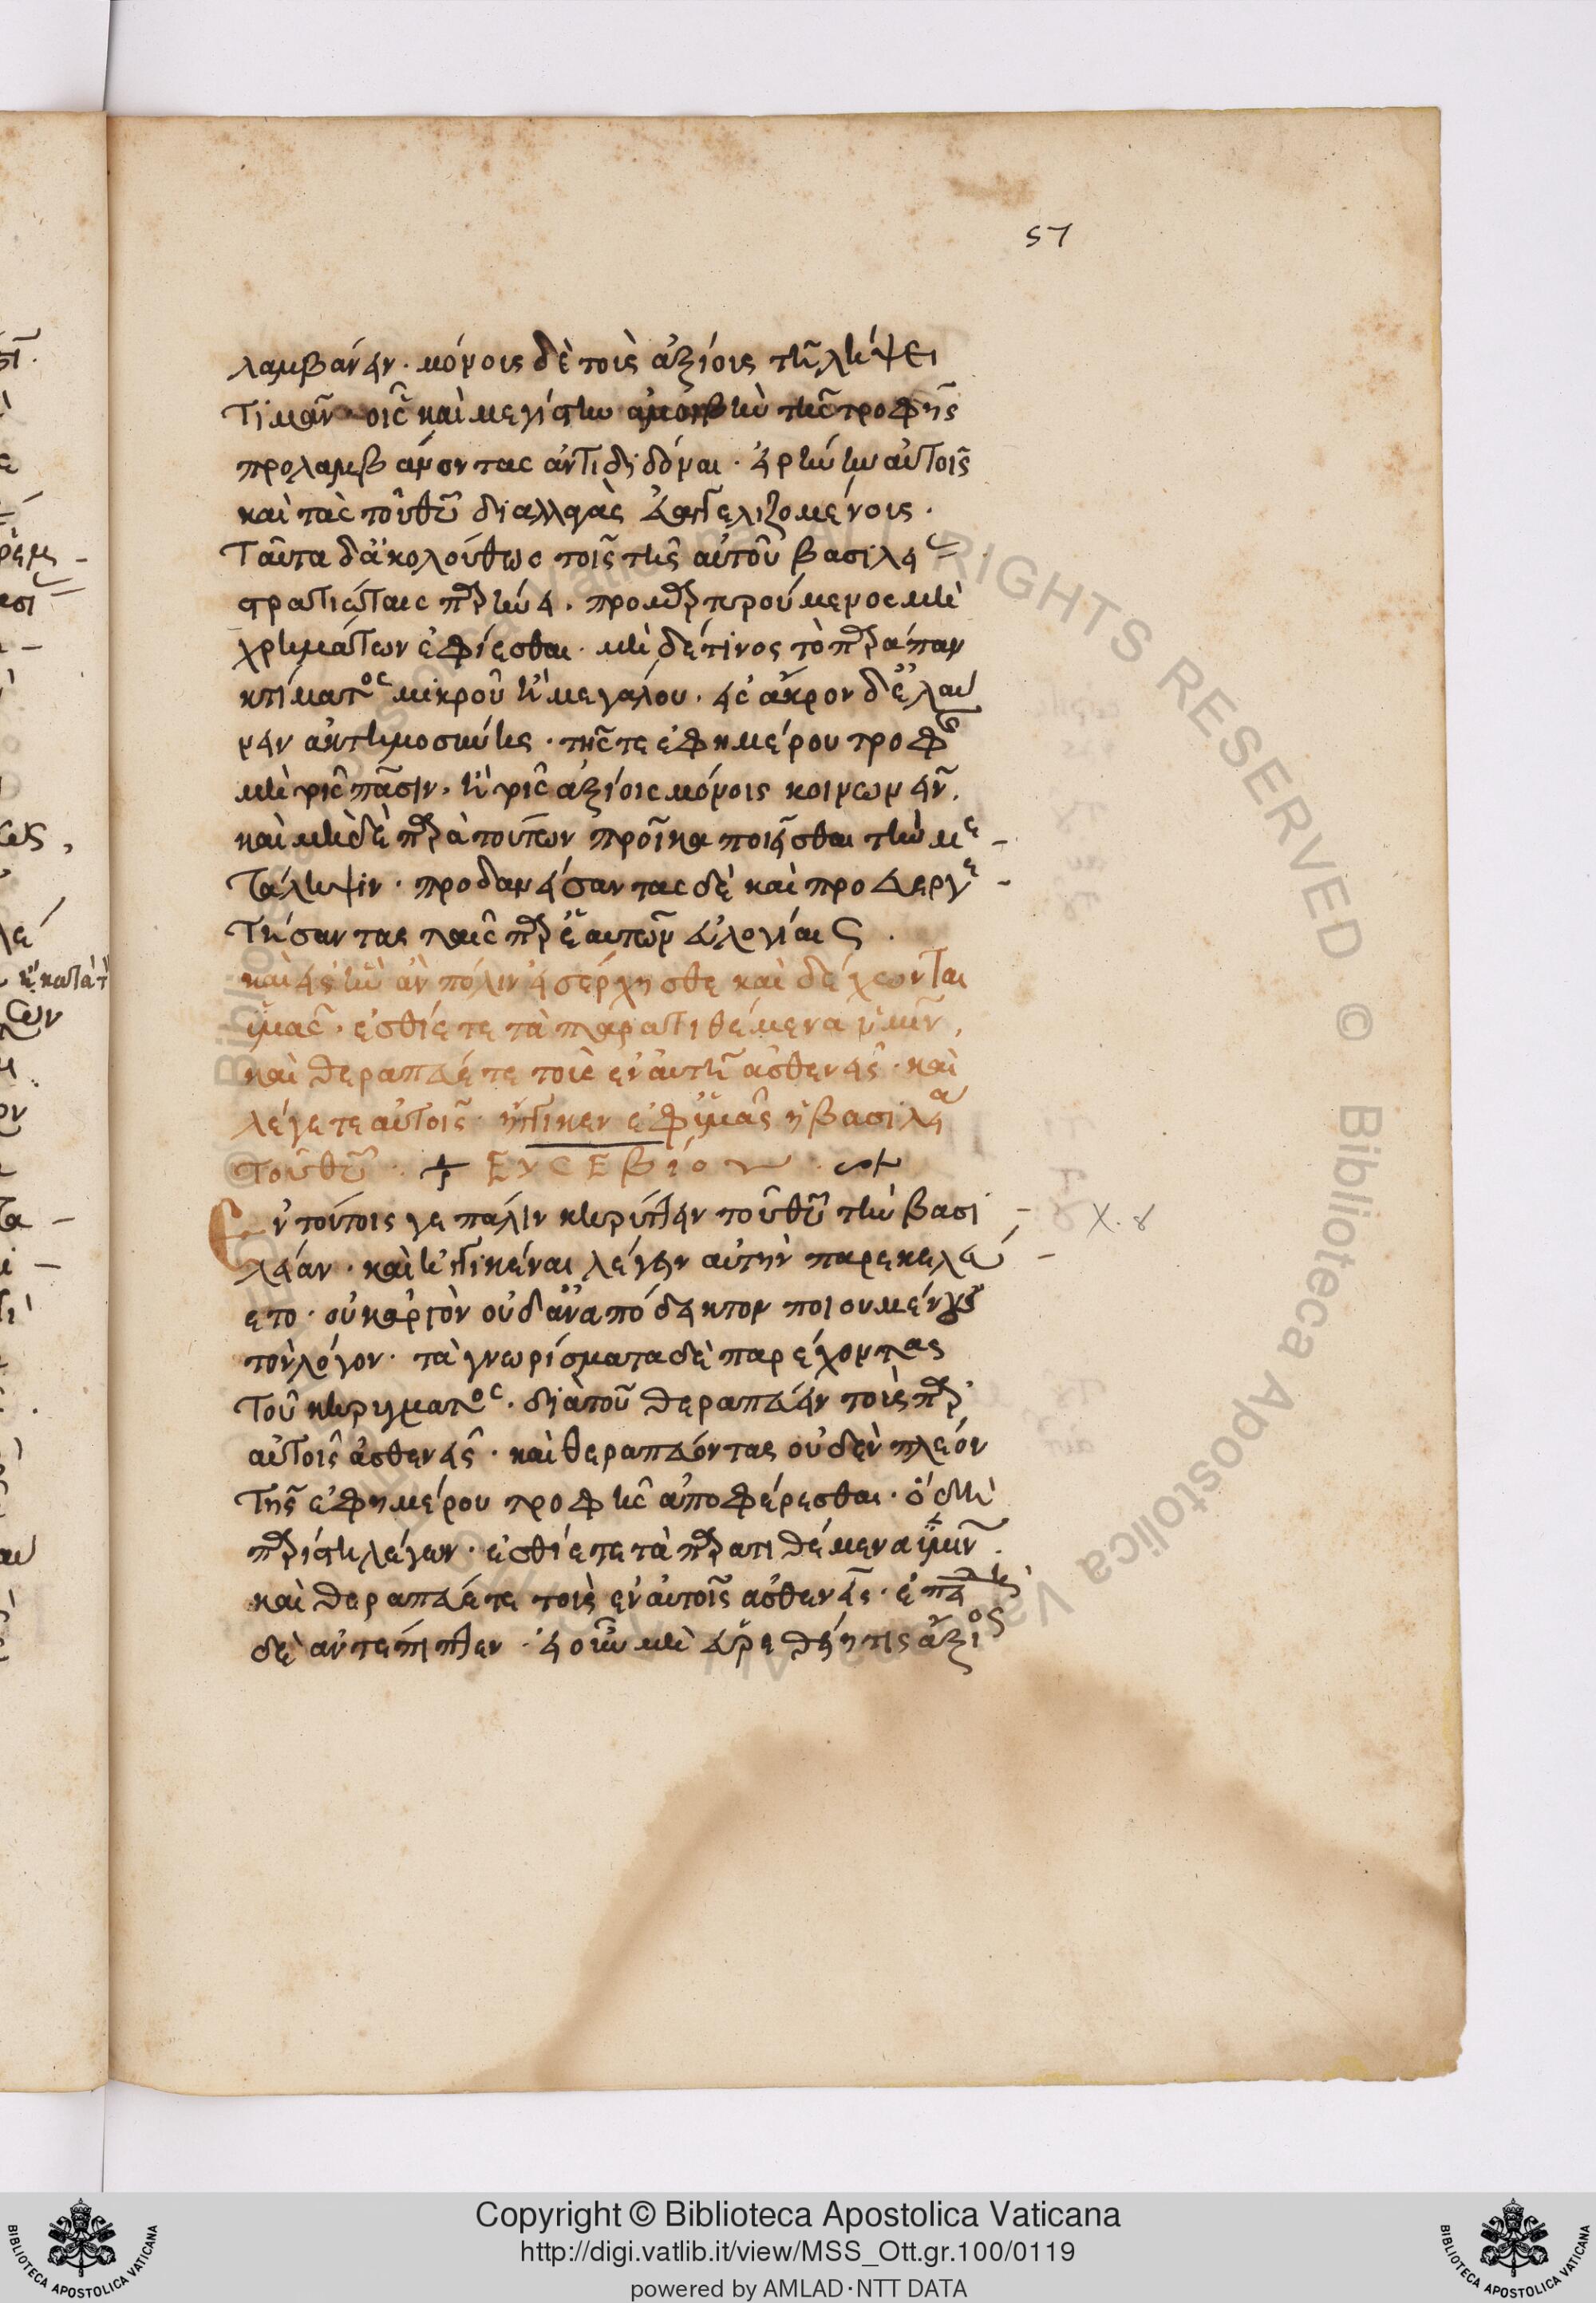 57
λαμβάνειν· μόνοις δὲ τοῖς ἀξίοις τῆ λήψει
τιμᾶν· οἷς καὶ μεγίστην ἀμοιβὴν τῆς τροφῆς
προλαμβάνοντας ἀντιδιδόναι· εἰρήνην αὐτοῖς
καὶ τὰς τοῦ θυ διαλλαγὰς εὐαγγελιζομένοις·
Ταῦτα δ' ἀκολούθως τοῖς τῆς αὐτοῦ βασιλείας
στρατιώταις παρήνει· προμηθούμενος μὴ
χρημάτων ἐφίεσθαι· μὴ δέ τινος τὸ παράπαν
κτίματος μικροῦ ἢ μεγάλου· εἰς ἄκρον δ' ἐλαύ
νειν ἀκτημοσύνης· τῆς τε ἐφημέρου τροφῆς
μὴ τοῖς πᾶσιν· ἢ τοῖς ἀξίοις μόνοις κοινωνεῖν.
καὶ μὴ δὲ παρὰ τούτων προῖκα ποιεῖσθαι τὴν με
τάληψιν· προδανείσαντας δὲ καὶ προευεργε
τήσαντας ταῖς παρ' ἑαυτῶν εὐλογίαις.
καὶ εἰς ἣν ἂν πόλιν εἰσέρχησθε καὶ δέχωνται
ὑμᾶς· ἐσθίετε τὰ παρατιθέμενα ὑμῖν,
καὶ θεραπεύετε τοὺς ἐν αὐτῆ ἀσθενεῖς· καὶ
λέγετε αὐτοῖς· ἤγγικεν ἐφ' ὑμᾶς ἡ βασιλεία
τοῦ θυ· + Ευσεβίου
Ἐν τούτοις γε πάλιν κηρύττειν τοῦ θυ τὴν βασι
λείαν· καὶ ἠγγικέναι λέγειν αὐτὴν παρεκελεύ
ετο· οὐκ ἀργὸν οὐδ' ἀναπόδεικτον ποιουμένους
τὸν λόγον· τὰ γνωρίσματα δὲ παρέχοντας
τοῦ κηρύγματος· διὰ τοῦ θεραπεύειν τοὺς παρ'
αὐτοῖς ἀσθενεῖς· καὶ θεραπεύοντας οὐδὲν πλέον
τῆς ἐφημέρου τροφῆς ἀποφέρεσθαι· ὃ δὴ
παρίστη λέγων· ἐσθίετε τὰ παρατιθέμενα ὑμῖν.
καὶ θεραπεύετε τοὺς ἐν αὐτοῖς ἀσθενεῖς· ἐπειδὴ
δὲ ἀντέπιπτεν· εἰ οὖν μὴ εὑρεθείη τις ἄξιος
Χ. γ
Copyright © Biblioteca Apostolica Vaticana
http://digi.vatlib.it/view/MSS_Ott.gr.100/0119
powered by AMLAD·NTT DATA